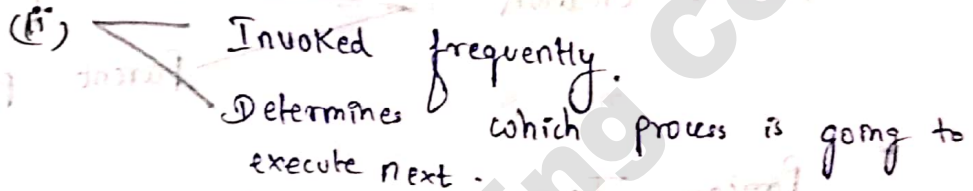 (ii) Invoked frequently.
Determines which process is going to
execute next.